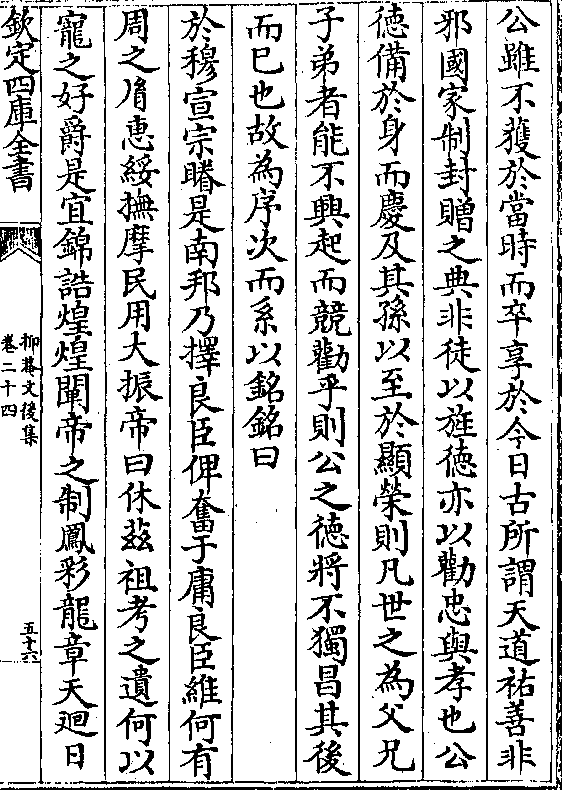 公雖不獲於當時而卒享於今日古所謂天道祐善非
邪國家制封贈之典非徒以旌徳亦以勸忠與孝也公
徳備於身而慶及其孫以至於顯榮則凡世之為父兄
子弟者能不興起而競勸乎則公之徳將不獨昌其後
而已也故為序次而系以銘銘曰
於穆宣宗睠是南邦乃擇良臣俾奮于庸良臣維何有
周之脩惠綏撫摩民用大振帝曰休兹祖考之遺何以
寵之好爵是宜錦誥煌煌闡帝之制鳳彩龍章天迴日
欽定四庫全書
抑菴文後集
卷二十四
五十六